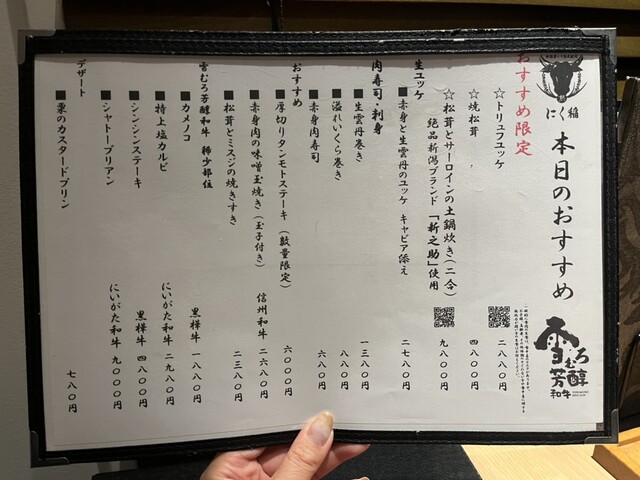 にく稲
本日のおすすめ
雪むろ芳醇和牛
おすすめ限定
☆トリュフユッケ 二八〇〇円
☆焼松茸 四八〇〇円
☆松茸とサーロインの土鍋炊き(二合) 九八〇〇円
絶品新潟ブランド「新之助」使用
生ユッケ
■赤身と生雲丹のユッケ キャビア添え 二七八〇円
肉寿司・刺身
■生雲丹巻き 一三八〇円
■溢れいくら巻き 八八〇円
■赤身肉寿司 六八〇円
おすすめ
■厚切りタンモトステーキ(数量限定) 六〇〇〇円
■赤身肉の味噌玉焼き(玉子付き) 信州和牛 二六八〇円
■松茸とミスジの焼きすき 二三八〇円
雪むろ芳醇和牛 稀少部位
■カメノコ 黒樺牛 一八八〇円
■特上塩カルビ にいがた和牛 二九八〇円
■シンシンステーキ 黒樺牛 四八〇〇円
■シャトーブリアン にいがた和牛 九〇〇〇円
デザート
■栗のカスタードプリン 七八〇円